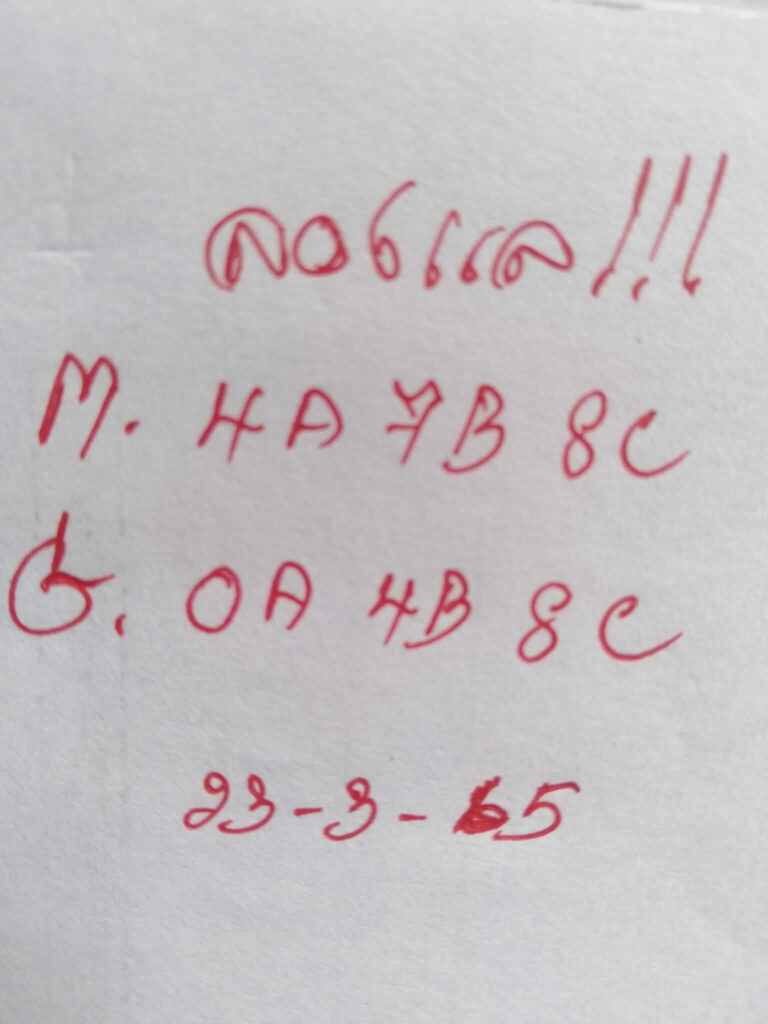 ลองแล!!!
M. 4A 7B 8C
G. 0A 4B 8C
23-3-65